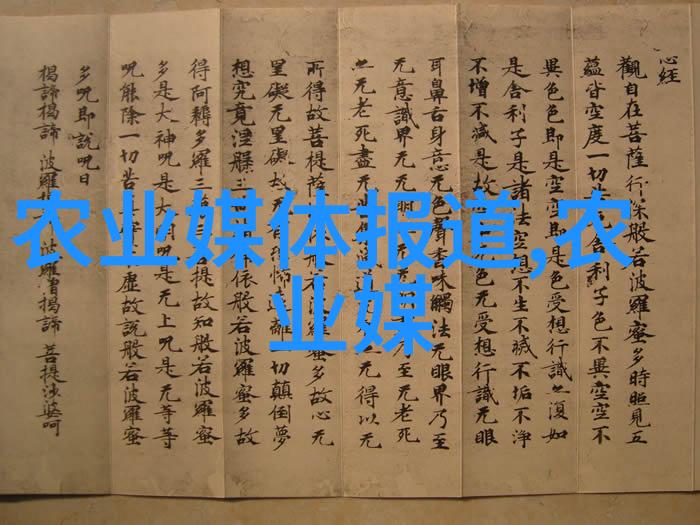 农业媒体报道,农
业媒
心经
觀自在菩薩行深般若波羅蜜多時照見五
蘊皆空度一切 舍利子色不異空空不
異色色即是空空即是色受想行識亦復如
是舍利子是諸法空想不生不滅不垢不淨
不增不減是故 色无受想行識无眼
耳鼻舌身意无色聲香味觸法无眼界乃至
无意識界无无明 乃至无老死
亦无老死盡无 道 亦无得以无
所得故菩提 般若波羅蜜多故心无
罣礙无罣礙故无 恐怖遠離一切顛倒夢
想究竟涅槃三 依般若波羅蜜多故
得阿耨多羅三 三菩提故知般若波羅蜜
多是大神呪是大明呪是无上呪是无等等
呪能除一切苦 虛故說般若波羅蜜
多呪即說呪曰
揭諦揭諦 波羅揭諦 波羅僧揭諦 菩提沙婆呵